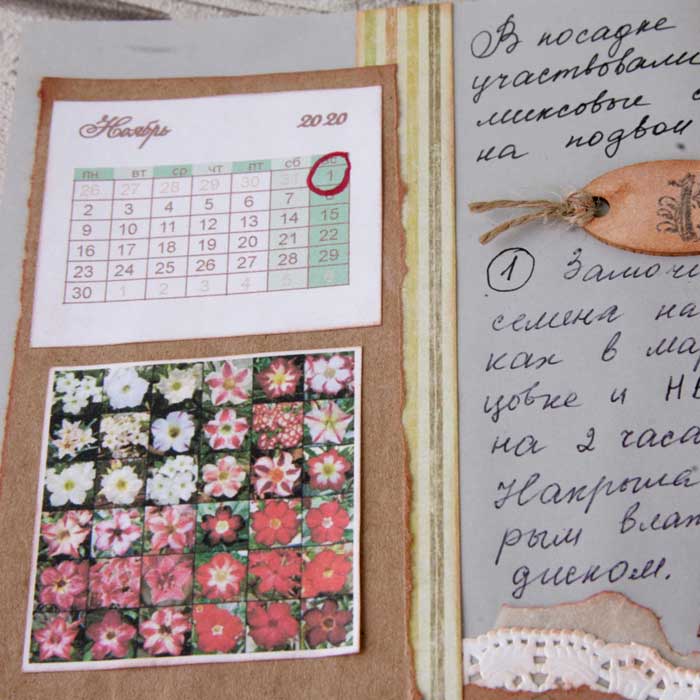 Ноябрь 2020
пн вт ср чт пт сб вс
26 27 28 29 30 31 1
2 3 4 5 6 7 8
9 10 11 12 13 14 15
16 17 18 19 20 21 22
23 24 25 26 27 28 29
30 1 2 3 4 5 6
В посадке
участвовали
миксовые
на подвои
1 Замочи
семена на
ках в мар
цовке и НВ
на 2 часа
Накрыла
рым влаж
диском.